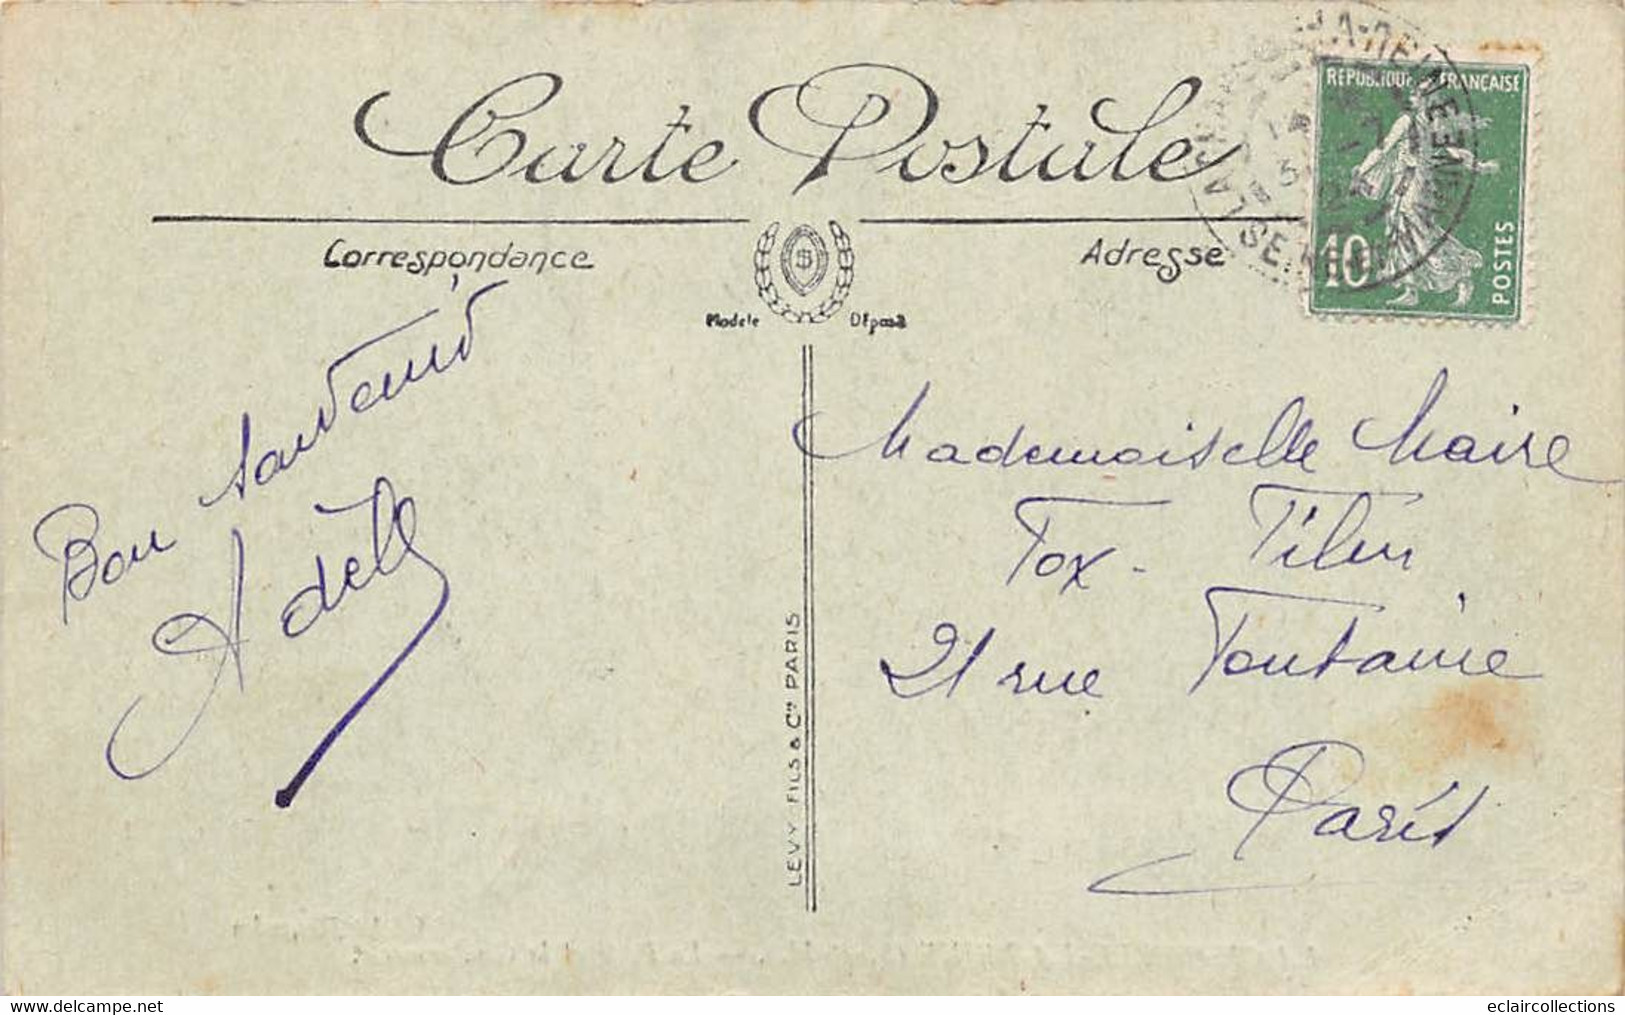 Carte Postale
Correspondance
Adresse
Modèle Déposé
RÉPUBLIQUE FRANÇAISE
10
POSTES
Bon souvenir
Adèle
Mademoiselle Maire
Fox-Film
21 rue Fontaine
Paris
LEVY FILS & Cie PARIS
www.delcampe.net
eclaircollections